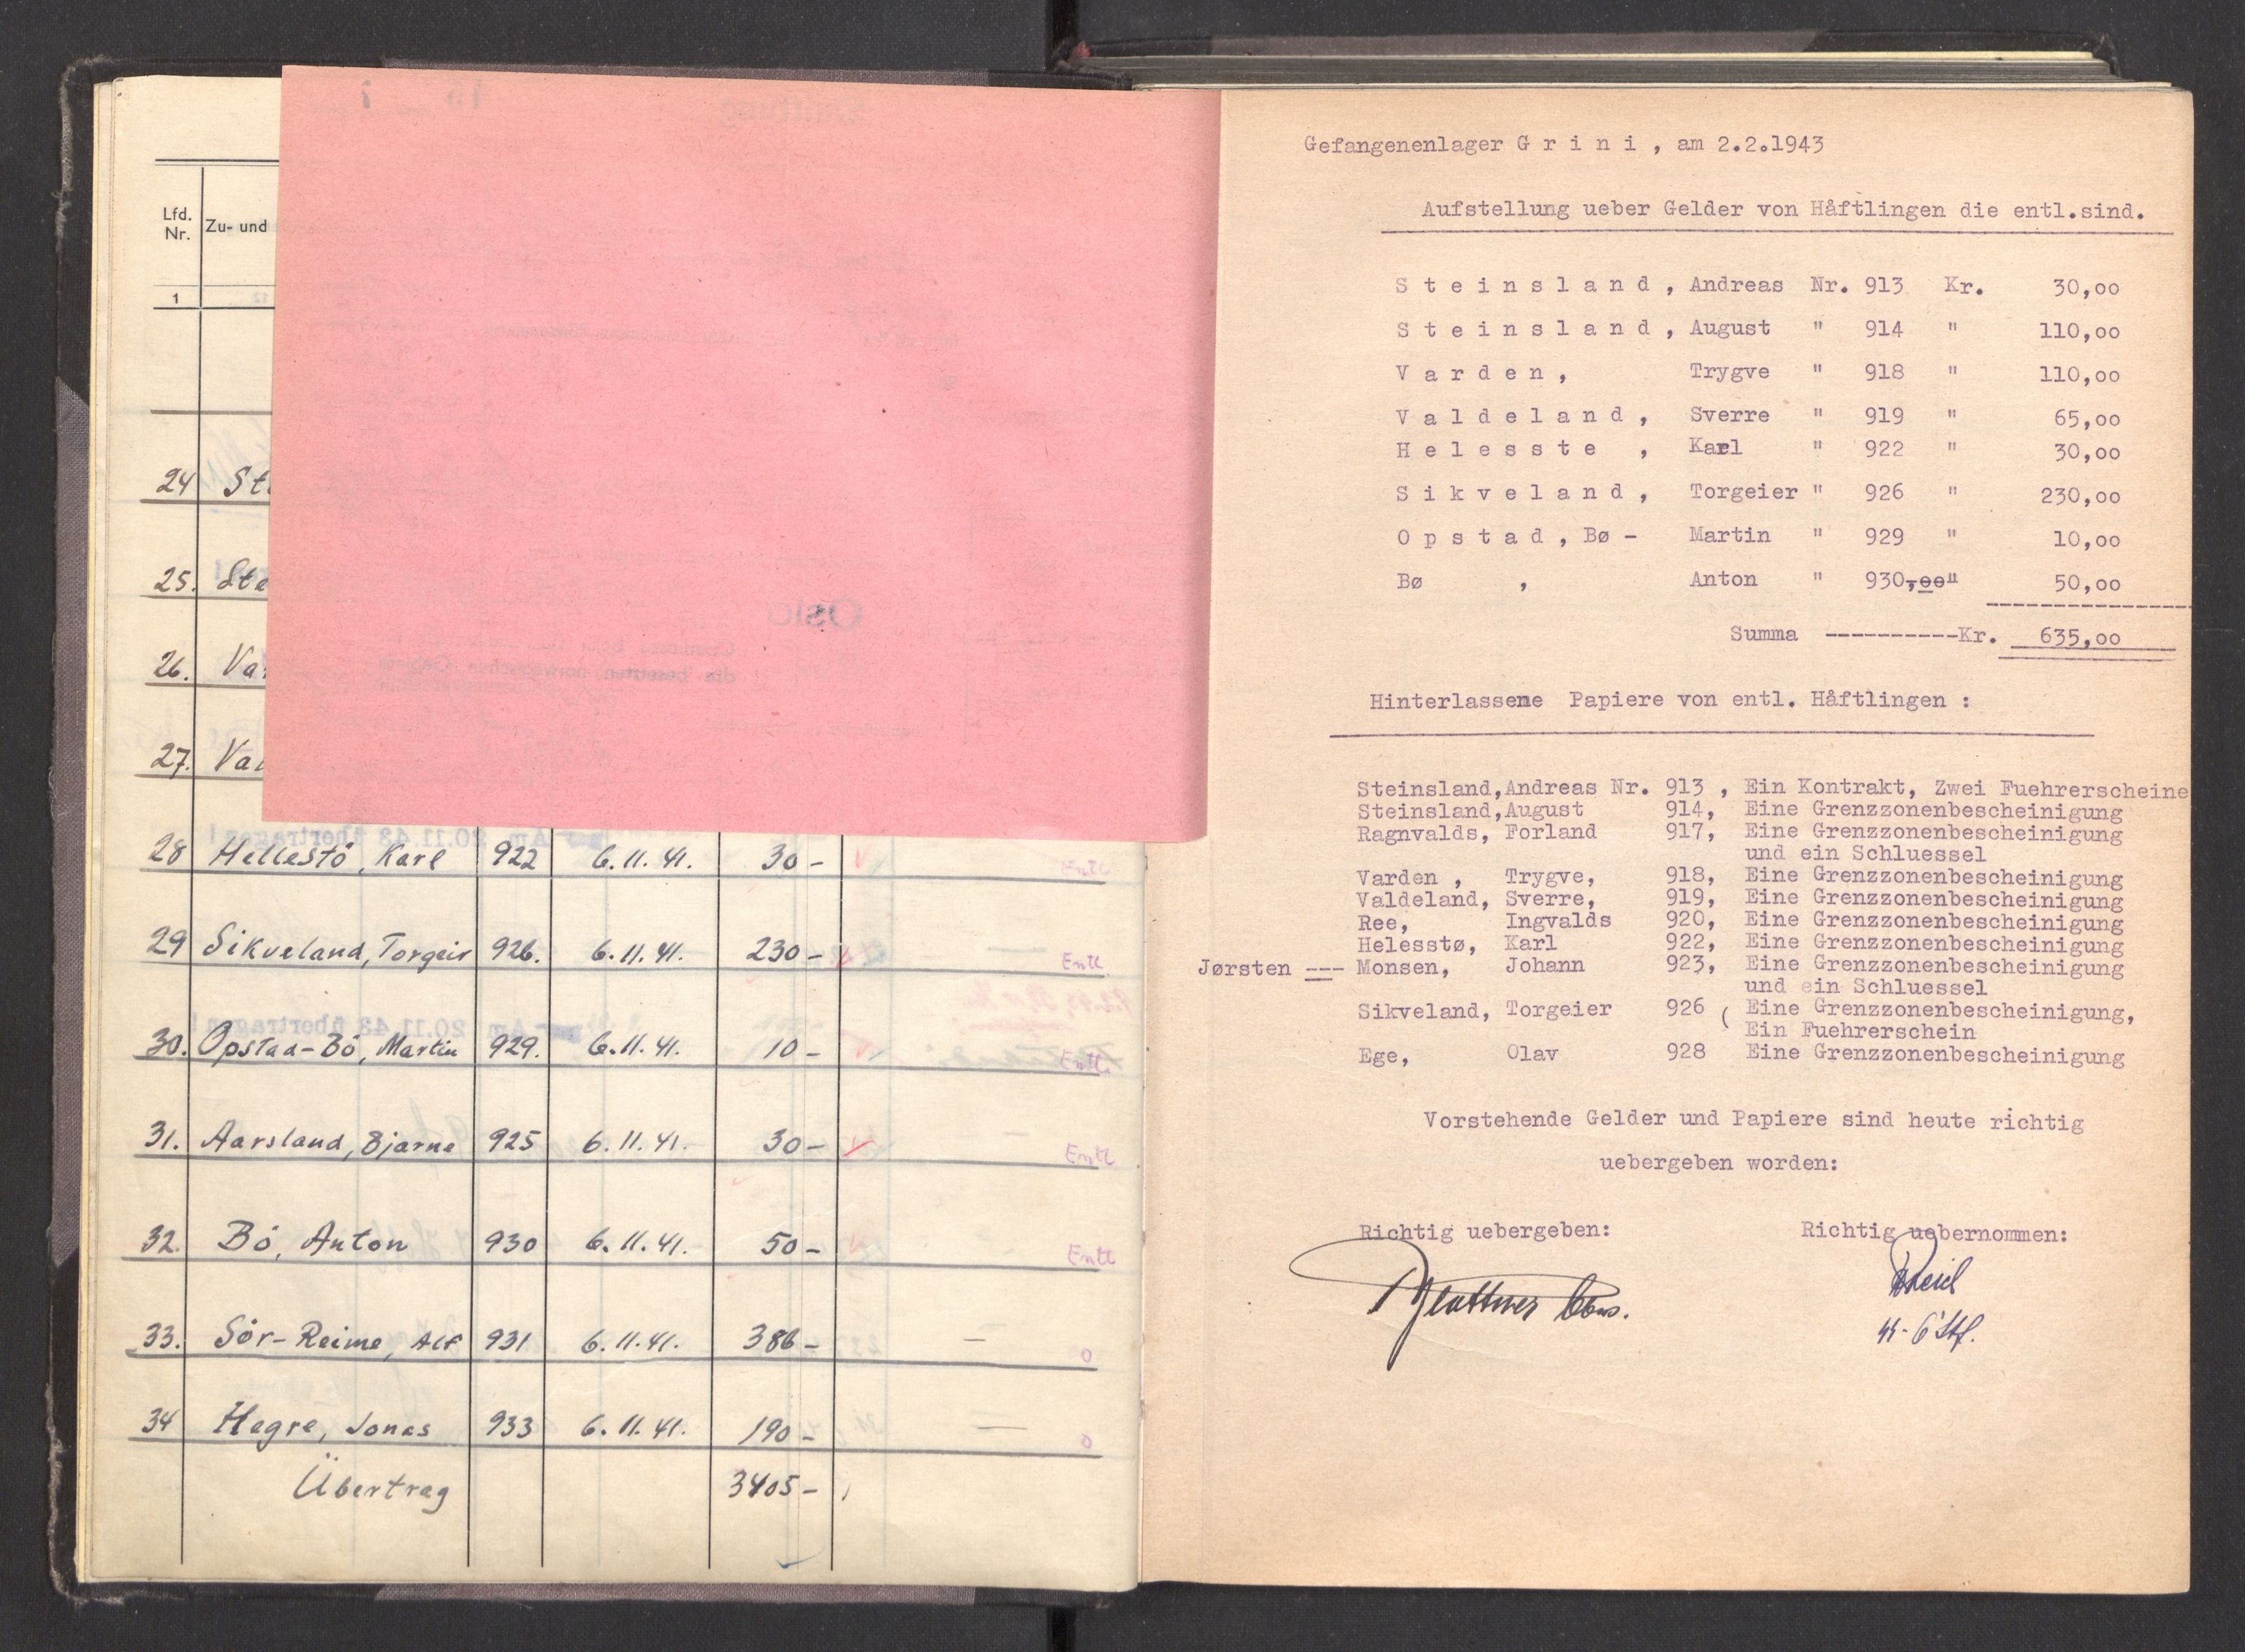 Lfd.
Nr.
Zu- und
1
24 St
25. Ste
26. Va
27. Va
28 Hellestö, Karl 922 6.11.41. 30 - Entl
29 Sikveland, Torgeir 926. 6.11.41. 230 - Entl.
30. Opstad-Bö, Martin 929. 6.11.41. 10 - Entl.
31. Aarsland, Bjarne 925 6.11.41. 30 - Entl
32. Bö, Anton 930 6.11.41. 50 - Entl
33. Sör-Reime, Alf 931 6.11.41. 386 - — 0
34 Hagre, Jonas 933 6.11.41. 190 - — 0
Übertrag 3405 -
Oslo
die besetzten norwegischen Gebiete
Am 20.11.43 übertragen!
Am 20.11.43 übertragen!
Gefangenenlager G r i n i , am 2.2.1943
Aufstellung ueber Gelder von Håftlingen die entl.sind.
S t e i n s l a n d , Andreas Nr. 913 Kr. 30,00
S t e i n s l a n d , August " 914 " 110,00
V a r d e n , Trygve " 918 " 110,00
V a l d e l a n d , Sverre " 919 " 65,00
H e l e s s t e , Karl " 922 " 30,00
S i k v e l a n d , Torgeier " 926 " 230,00
O p s t a d , Bø - Martin " 929 " 10,00
Bø , Anton " 930,00" 50,00
Summa ----------Kr. 635,00
Hinterlassene Papiere von entl. Håftlingen :
Steinsland,Andreas Nr. 913 , Ein Kontrakt, Zwei Fuehrerscheine
Steinsland,August 914, Eine Grenzzonenbescheinigung
Ragnvalds, Forland 917, Eine Grenzzonenbescheinigung
und ein Schluessel
Varden , Trygve, 918, Eine Grenzzonenbescheinigung
Valdeland, Sverre, 919, Eine Grenzzonenbescheinigung
Ree, Ingvalds 920, Eine Grenzzonenbescheinigung
Helesstø, Karl 922, Eine Grenzzonenbescheinigung
Jørsten --- Monsen, Johann 923, Eine Grenzzonenbescheinigung
und ein Schluessel
Sikveland, Torgeier 926 ( Eine Grenzzonenbescheinigung,
Ein Fuehrerschein
Ege, Olav 928 Eine Grenzzonenbescheinigung
Vorstehende Gelder und Papiere sind heute richtig
uebergeben worden:
Richtig uebergeben: Richtig uebernommen: